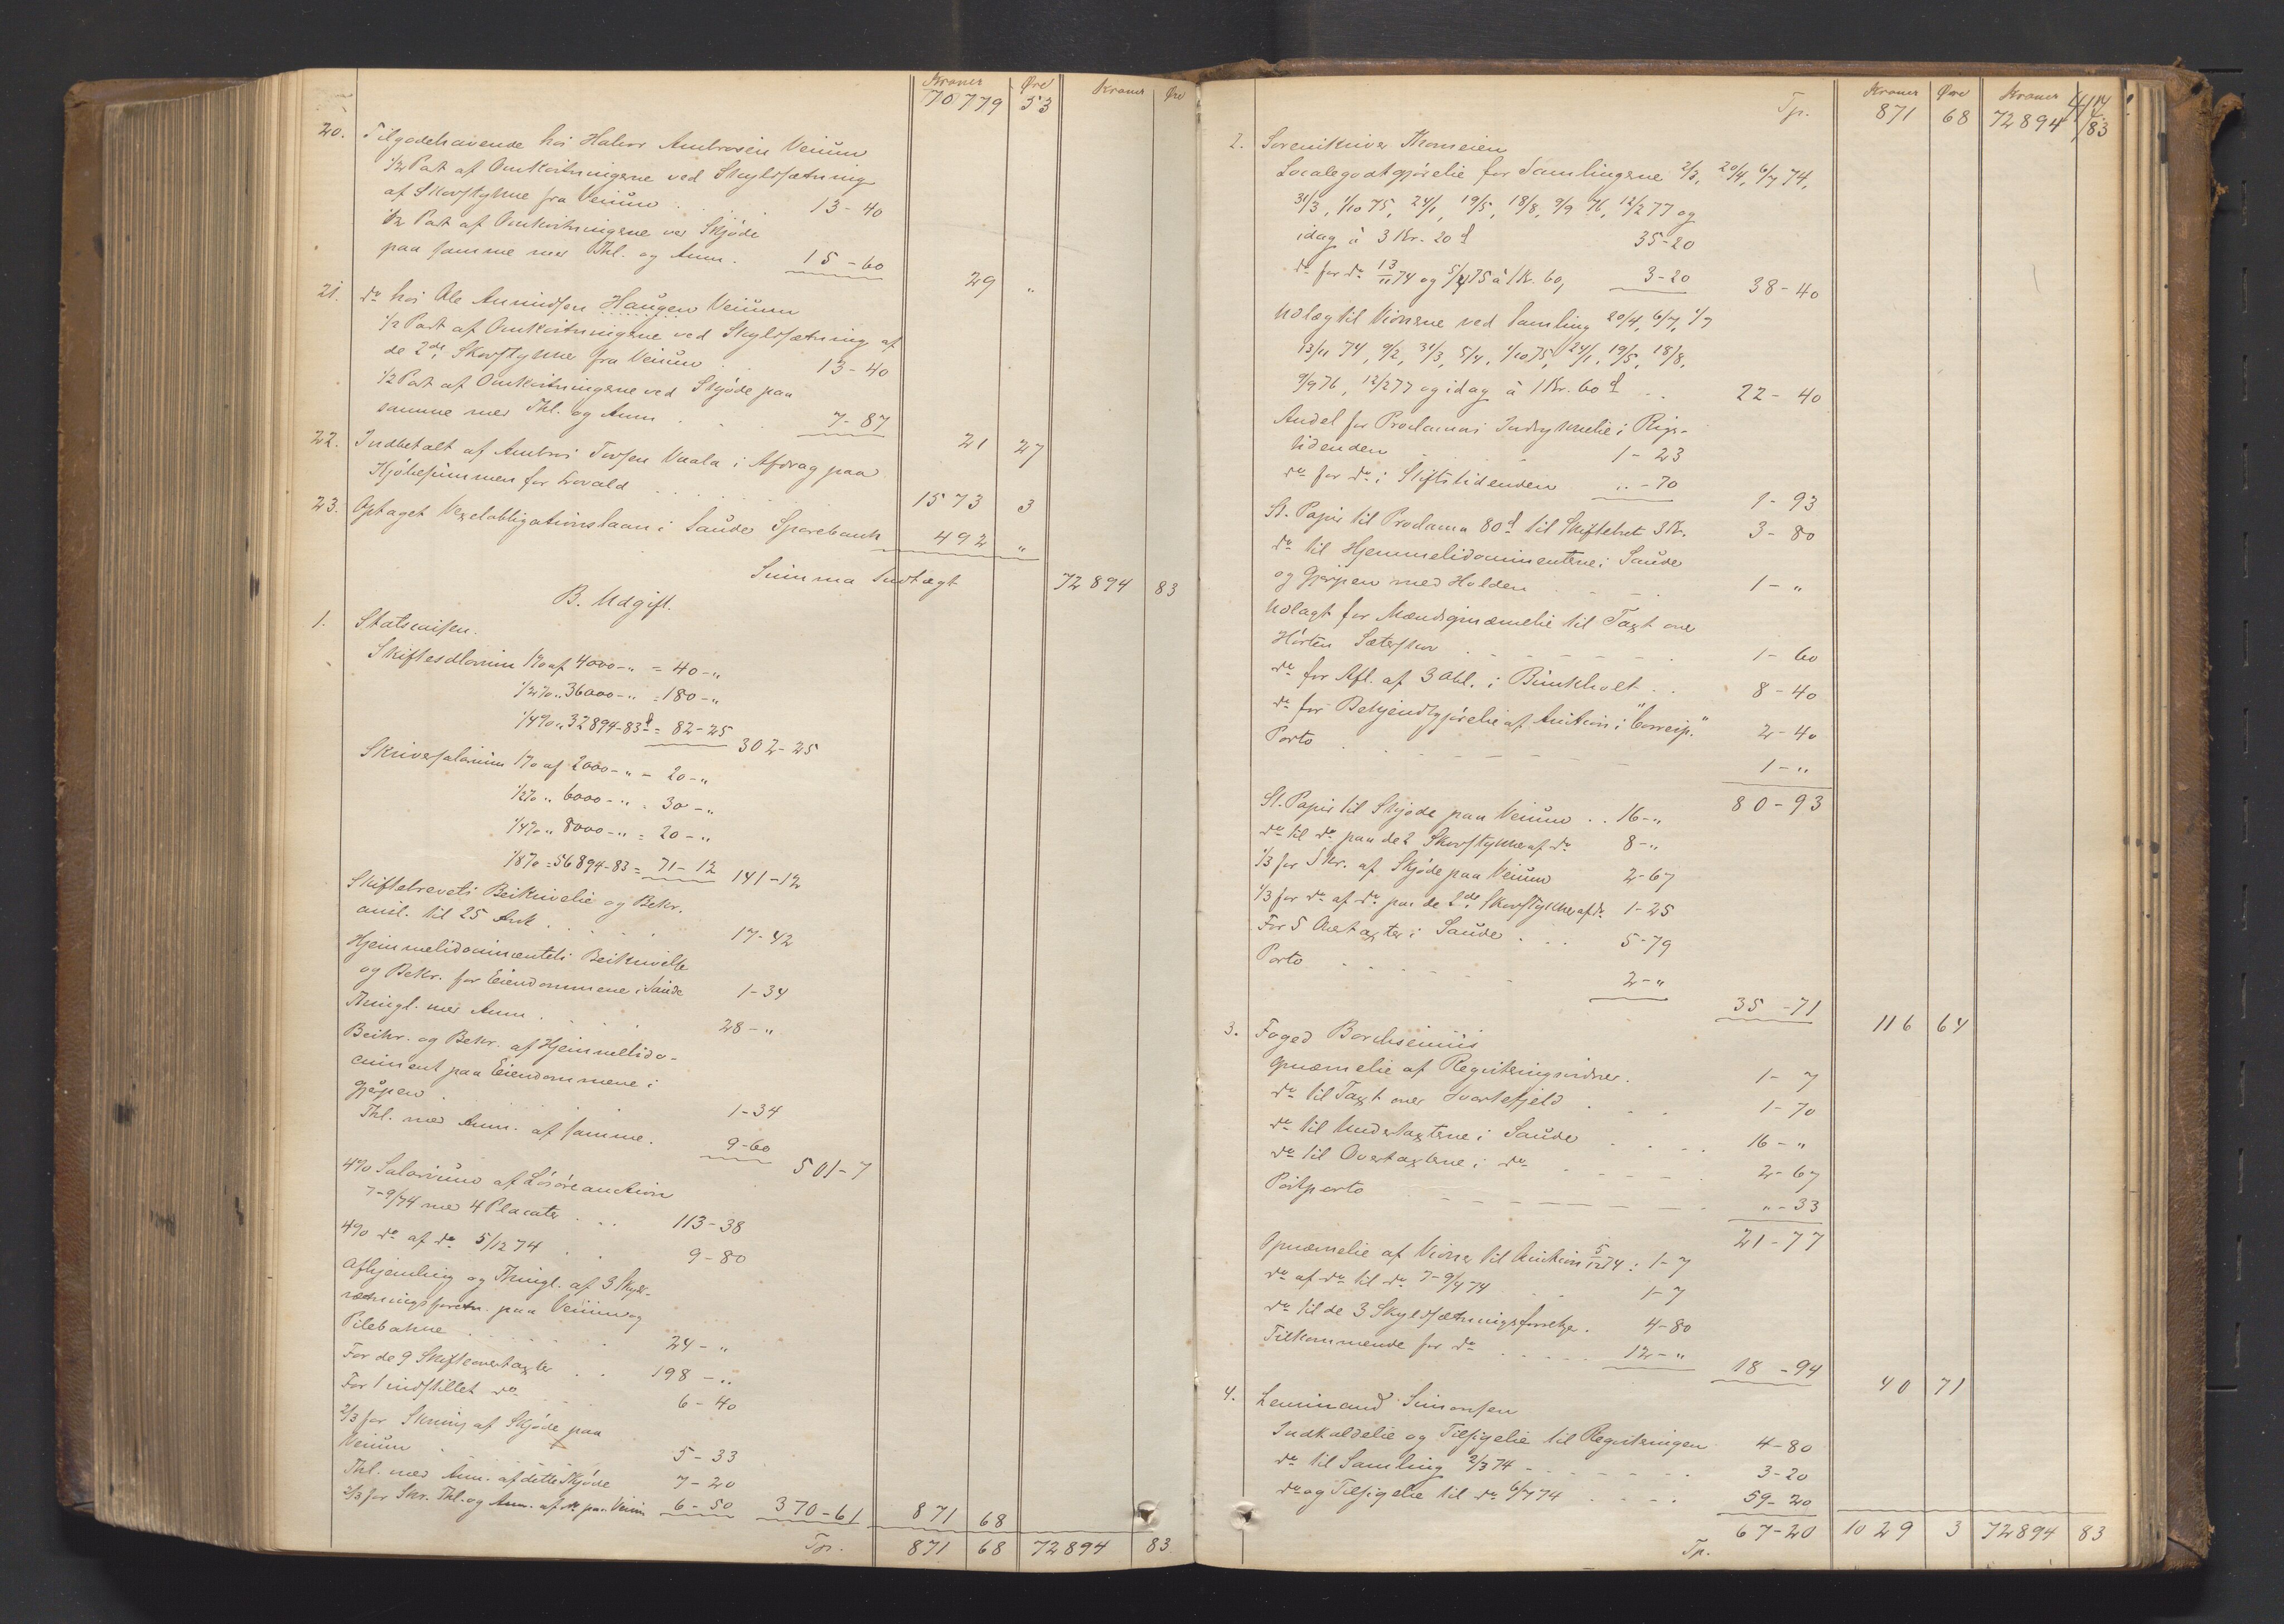 Kroner Øre Kroner Øre
70779 53
20. Tilgodehavende hos Halvor Ambrosen Veium
1/2 Part af Omkostningerne ved Skyldsætning
af Skovstykke fra Veium . . . 13-40
1/2 Part af Omkostningerne ved Skjøde
paa samme med Thl. og Anm. 15-60 29 "
21. do hos Ole Amundsen Haugen Veium
1/2 Part af Omkostningerne ved Skyldsætning af
de 2de Skovstykker fra Veium . . 13-40
1/2 Part af Omkostningerne ved Skjøde paa
samme med Thl. og Anm . . . 7-87 21 27
22. Indbetalt af Ambros Torsen Vaala i Afdrag paa
Kjøbesummen for Lovald . . . . . 1573 3
23. Optaget Vexelobligationslaan i Saude Sparebank 492 "
Summa Indtægt 72894 83
B. Udgift.
1. Statskassen.
Skiftesalarium 1% af 4000-" = 40-"
1/2% " 36000-" = 180-"
1/4% " 32894-83 = 82-25 302-25
Skriversalarium 1% af 2000-" = 20-"
1/2% " 6000-" = 30-"
1/4% " 8000-" = 20-"
1/8% = 56894-83 = 71-12 141-12
Skiftebrevets Beskrivelse og Bekr.
ansl. til 25 Ark . . . . 17-42
Hjemmelsdocumentets Beskrivelse
og Bekr. for Eiendommene i Saude 1-34
Thingl. med Anm . . . . 28-"
Beskr. og Bekr. af Hjemmelsdo-
cument paa Eiendommene i
Gjerpen . . . . 1-34
Thl. med Anm. af samme. 9-60 501-7
4% Salarium af Løsøreauction
7-9/4 74 med 4 Placater . . . 113-38
4% do af do 5/12 74 . . 9-80
Afhjemling og Thingl. af 3 Skyld-
sætningsforretn. paa Veium og
Pilebakke . . . . . . 24-"
For de 9 Skifteovertaxter . . 198-"
For 1 indstillet do . . 6-40
2/3 for Skrivn. af Skjøde paa
Veium . 5-33
Thl. med Anm. af dette Skjøde 7-20
2/3 for Skr. Thl. og Anm. af do paa Veium 6-50 370-61 871 68
Tp. 871 68 72894 83
Kroner Øre Kroner
Tp. 871 68 72894 83
2. Sorenskriver Thomesen
Localegodtgjørelse for Samlingerne 2/3, 20/4, 6/7 74,
31/3, 1/10 75, 24/1, 19/5, 18/8, 9/9 76, 12/2 77 og
idag à 3 Kr. 20 35-20
do for do 13/11 74 og 5/4 75 à 1 Kr. 60, 3-20 38-40
Udlæg til Vidnerne ved Samling 20/4, 6/7, 1/7
13/11 74, 9/2, 31/3, 5/4, 1/10 75, 24/1, 19/5, 18/8,
9/9 76, 12/2 77 og idag à 1 Kr. 60 . . 22-40
Andel for Proclamas Indrykkelse i Rigs-
tidenden . . . . 1-23
do for do i Stiftstidenden " -70 1-93
St. Papir til Proclama 80 til Skiftebrevet 3 Kr. 3-80
do til Hjemmelsdocumenterne i Saude
og Gjerpen med Holden . . . . 1-"
Udlagt for Mænds Opnævnelse til Taxt over
Hørten Sæterskov . . . . . . 1-60
do for Afl. af 3 Obl. i Bunkholt . . 8-40
do for Bekjendtgjørelse af Auction i "Corresp." 2-40
Porto . . . . . . . 1-"
80-93
St. Papir til Skjøde paa Veium . . 16-"
do til do paa de 2 Skovstykker af do 8-"
1/3 for Skr. af Skjøde paa Veium 2-67
1/3 for do af do paa de 2de Skovstykker af do 1-25
For 5 Overtaxter i Saude . . . 5-79
Porto . . . . . . 2-"
35-71 116 64
3. Foged Borchsenius
Opnævnelse af Registreringsvidner. 1-7
do til Taxt over Svartefjeld . . . 1-70
do til Undertaxterne i Saude . . . . 16-"
do til Overtaxterne i do . . . . . 2-67
Postporto . . . . . . . "-33
21-77
Opnævnelse af Vidner til Auction 5/12 74: 1-7
do af do til do 7-9/4 74 . . 1-7
do til de 3 Skyldsætningsforretn. . 4-80
Tilkommende for do . . . . . 12-" 18-94 40 71
4. Lensmand Simonsen
Indkaldelse og Tilsigelse til Registreringen 4-80
do til Samling 2/3 74 . . . . . . 3-20
do og Tilsigelse til do 6/7 74 . . . . 59-20
67-20 1029 3 72894 83
Tp.